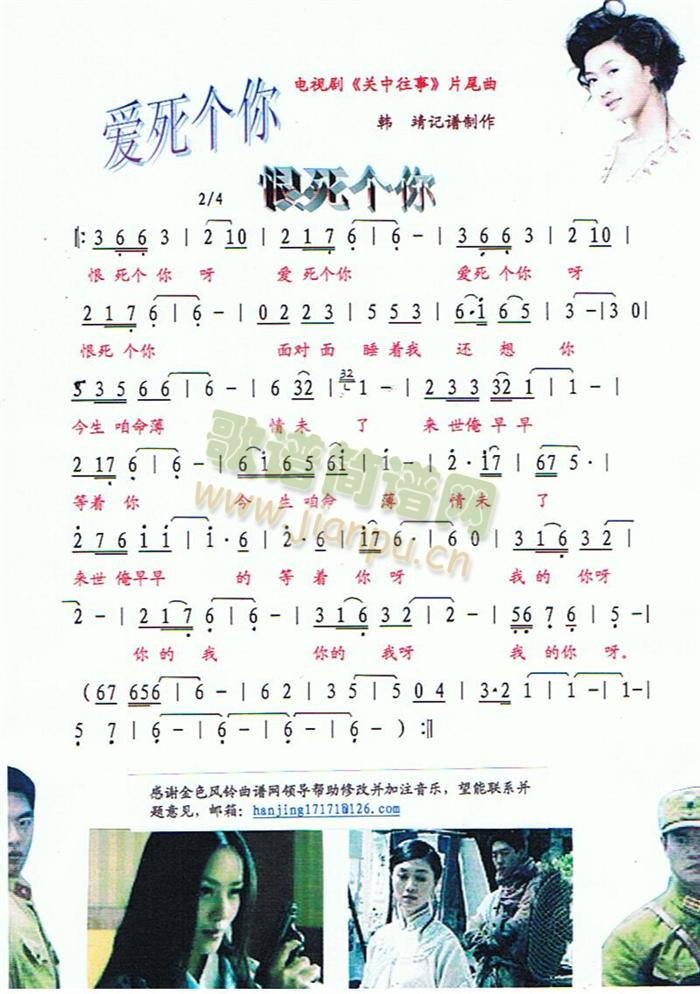 爱死个你
电视剧《关中往事》片尾曲
韩 靖记谱制作
恨死个你
2/4
‖: 3 6 6 3 | 2 1 0 | 2 1 7 6 | 6 - | 3 6 6 3 | 2 1 0 |
恨 死个 你 呀 爱 死个你 爱死 个你 呀
2 1 7 6 | 6 - | 0 2 2 3 | 5 5 3 | 6·i 6 5 | 3 - | 3 0 |
恨死 个你 面对 面 睡着我 还 想 你
5 3 5 6 6 | 6 - | 6 32 | 32 1 - | 2 3 3 32 1 | 1 - |
今生 咱命薄 情未 了 来世俺早早
2 17 6 | 6 - | 6 i 6 5 6i | i - | 2· i7 | 67 5· |
等着 你 今 生 咱命 薄 情未 了
2 7 6 i i | i· 6 | 2· 6 | i7 6 | 6 - | 3 1 6 3 2 |
来世 俺早早 的 等 着 你呀 我的 你呀
2 - | 2 1 7 6 | 6 - | 3 1 6 3 2 | 2 - | 5 6 7 6 | 5 - |
你的 我 你的 我呀 我 的你 呀。
(67 656 | 6 - | 6 2 | 3 5 | 5 0 4 | 3·2 1 | 1 - | 1 - |
5 7 | 6 - | 6 - | 6 - | 6 - ) :‖
歌谱简谱网
www.jianpu.cn
感谢金色风铃曲谱网领导帮助修改并加注音乐，望能联系并
题意见，邮箱：hanjing17171@126.com